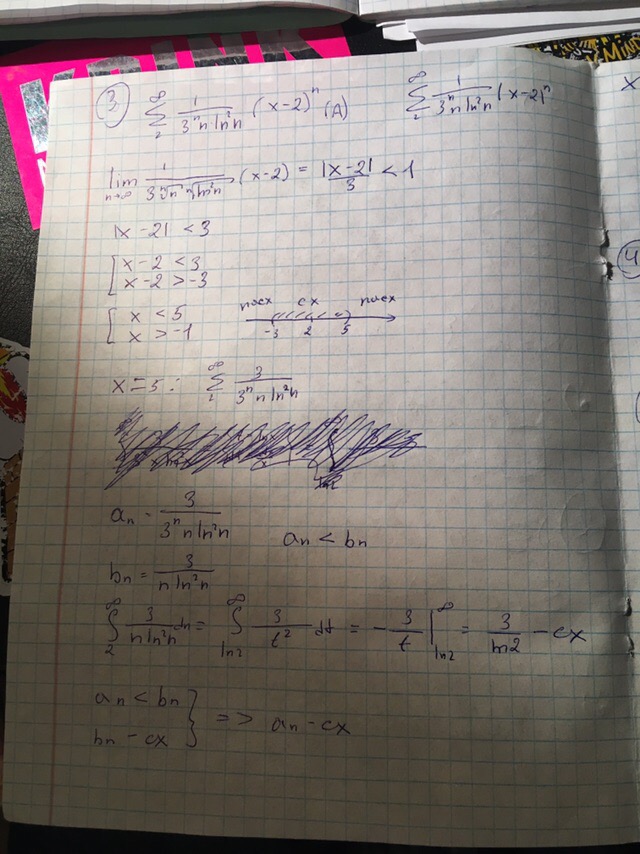 ③ ∞ Σ 2 1/(3ⁿ n ln²n) (x-2)ⁿ (A)
∞ Σ 2 1/(3ⁿ n ln²n) (x-2)ⁿ
lim n→∞ 1/(3 ⁿ√n ⁿ√ln²n) (x-2) = |x-2|/3 < 1
|x-2| < 3
[ x-2 < 3
x-2 > -3
[ x < 5
x > -1
расх сх расх
-3 2 5
x = 5 : ∞ Σ 2 3/(3ⁿ n ln²n)
aₙ - 3/(3ⁿ n ln²n)
aₙ < bₙ
bₙ = 3/(n ln²n)
∞ ∫ 2 3/(n ln²n) dn = ∞ ∫ ln2 3/t² dt = - 3/t |∞ ln2 = 3/ln2 - сх
aₙ < bₙ
bₙ - сх } => aₙ - сх
х
④